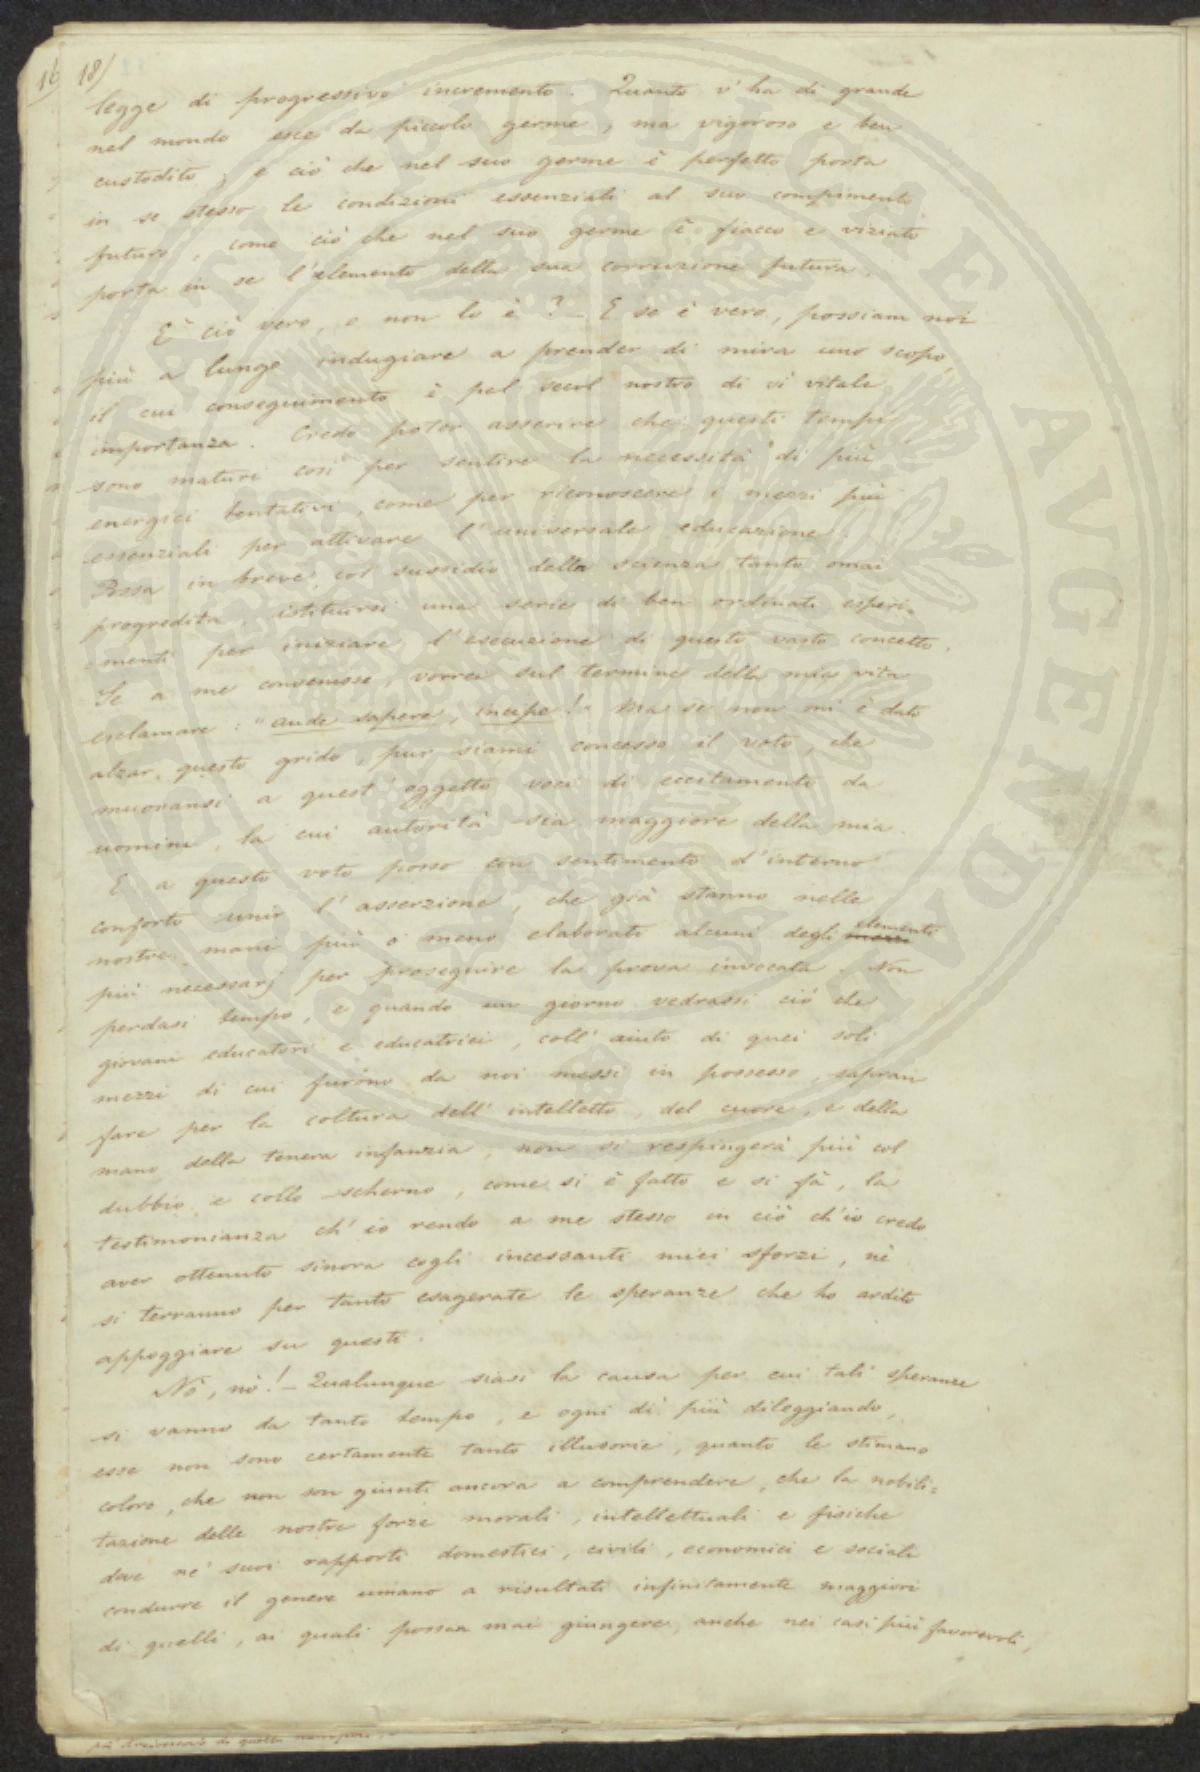 16 18/
legge di progressivo incremento. Quanto v'ha di grande
nel mondo esce da piccolo germe, ma vigoroso e ben
custodito; e ciò che nel suo germe è perfetto porta
in se stesso le condizioni essenziali al suo compimento
futuro, come ciò che nel suo germe è fiacco e viziato
porta in se l'elemento della sua corruzione futura.
È ciò vero, o non lo è? – E se è vero, possiam noi
più a lungo indugiare a prender di mira uno scopo,
il cui conseguimento è pel secol nostro di sì vitale
importanza. Credo poter asserire che questi tempi
sono maturi così per sentire la necessità di più
energici tentativi, come per riconoscere i mezzi più
essenziali per attivare l'universale educazione.
Possa in breve, col sussidio della scienza tanto omai
progredita, istituirsi una serie di ben ordinati esperi=
=menti per iniziare l'esecuzione di questo vasto concetto.
Se a me convenisse, vorrei sul termine della mia vita
esclamare: "aude sapere, incipe!" Ma se non mi è dato
alzar questo grido, pur siami concesso il voto, che
muovansi a quest'oggetto voci di eccitamento da
uomini, la cui autorità sia maggiore della mia.
E a questo voto posso con sentimento d'interno
conforto unir l'asserzione, che già stanno nelle
nostre mani più o meno elaborati alcuni degli mezzi elementi
più necessarj per proseguire la prova invocata. Non
perdasi tempo, e quando un giorno vedrassi ciò che
giovani educatori e educatrici, coll'aiuto di quei soli
mezzi di cui furono da noi messi in possesso, sapran
fare per la coltura dell'intelletto, del cuore, e della
mano della tenera infanzia, non si respingerà più col
dubbio e collo scherno, come si è fatto e si fà, la
testimonianza ch'io rendo a me stesso in ciò ch'io credo
aver ottenuto sinora cogli incessanti miei sforzi, nè
si terranno per tanto esagerate le speranze che ho ardito
appoggiare su questi.
Nò, nò! – Qualunque siasi la causa per cui tali speranze
si vanno da tanto tempo, e ogni dì più dileggiando,
esse non sono certamente tanto illusorie, quanto le stimano
coloro, che non son giunti ancora a comprendere, che la nobili=
tazione delle nostre forze morali, intellettuali e fisiche
deve ne' suoi rapporti domestici, civili, economici e sociali
condurre il genere umano a risultati infinitamente maggiori
di quelli, ai quali possan mai giungere, anche nei casi più favorevoli,
EDUCATIONI PUBLICAE AUGENDAE